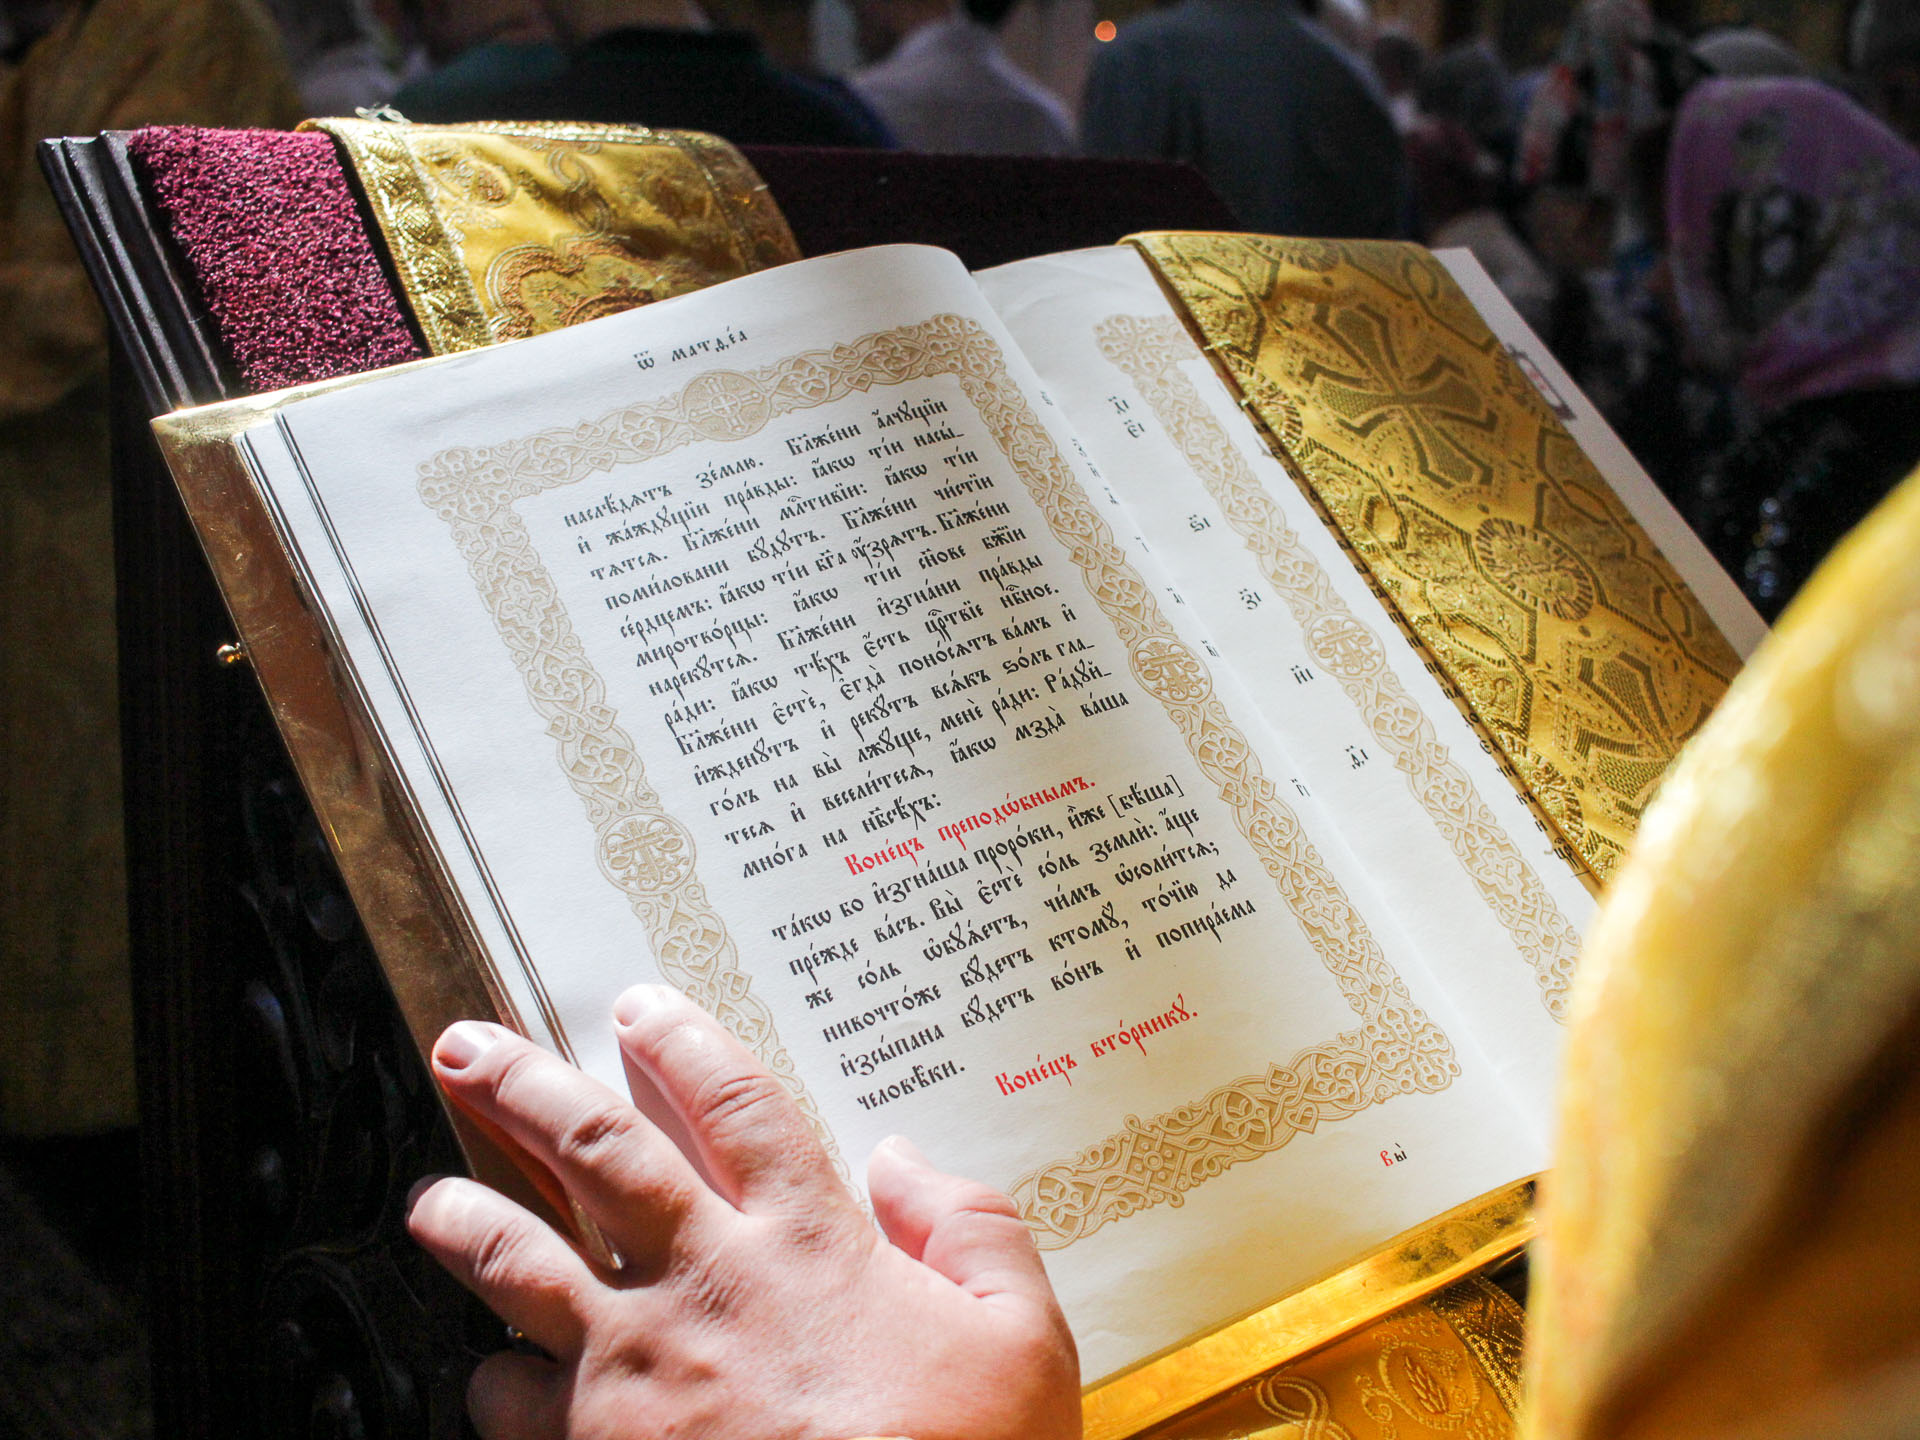 Ѿ матѳе́а
наслѣ́дѧтъ зе́млю. Бл҃же́ни а҆́лчꙋщїи
и҆ жа́ждꙋщїи пра́вды: ꙗ҆́кѡ ті́и насы́_
тѧтсѧ. Бл҃же́ни млⷭ҇тивїи: ꙗ҆́кѡ ті́и
поми́ловани бꙋ́дꙋтъ. Бл҃же́ни чи́стїи
се́рдцемъ: ꙗ҆́кѡ ті́и бг҃а ᲂу҆́зрѧтъ. Бл҃же́ни
миротво́рцы: ꙗ҆́кѡ ті́и сн҃ове бж҃їи
нарекꙋ́тсѧ. Бл҃же́ни и҆згна́ни пра́вды
ра́ди: ꙗ҆́кѡ тѣ́хъ є҆́сть црⷭ҇твїе нбⷭ҇ное.
Бл҃же́ни є҆стѐ, є҆гда̀ поно́сѧтъ ва́мъ и҆
и҆жденꙋ́тъ и҆ рекꙋ́тъ всѧ́къ ѕо́лъ гла_
го́лъ на вы̀ лжꙋ́ще, менѐ ра́ди: Ра́дꙋй_
тесѧ и҆ весели́тесѧ, ꙗ҆́кѡ мзда̀ ва́ша
мно́га на нб҃сѣ́хъ:
Коне́цъ преподѡ́бнымъ.
та́кѡ бо и҆згна́ша проро́ки, и҆̀же [бѣ́ша]
пре́жде ва́съ. Вы̀ є҆стѐ со́ль землѝ: а҆́ще
же со́ль ѡ҆бꙋѧ́етъ, чи́мъ ѡ҆соли́тсѧ;
ничто́же бꙋ́детъ ктомꙋ̀, то́чїю да
и҆зсы́пана бꙋ́детъ во́нъ и҆ попира́ема
человѣ́ки.
Коне́цъ вто́рникꙋ.
Вы̀
а҃і
є҃і
ѕ҃і
з҃і
и҃і
д҃і